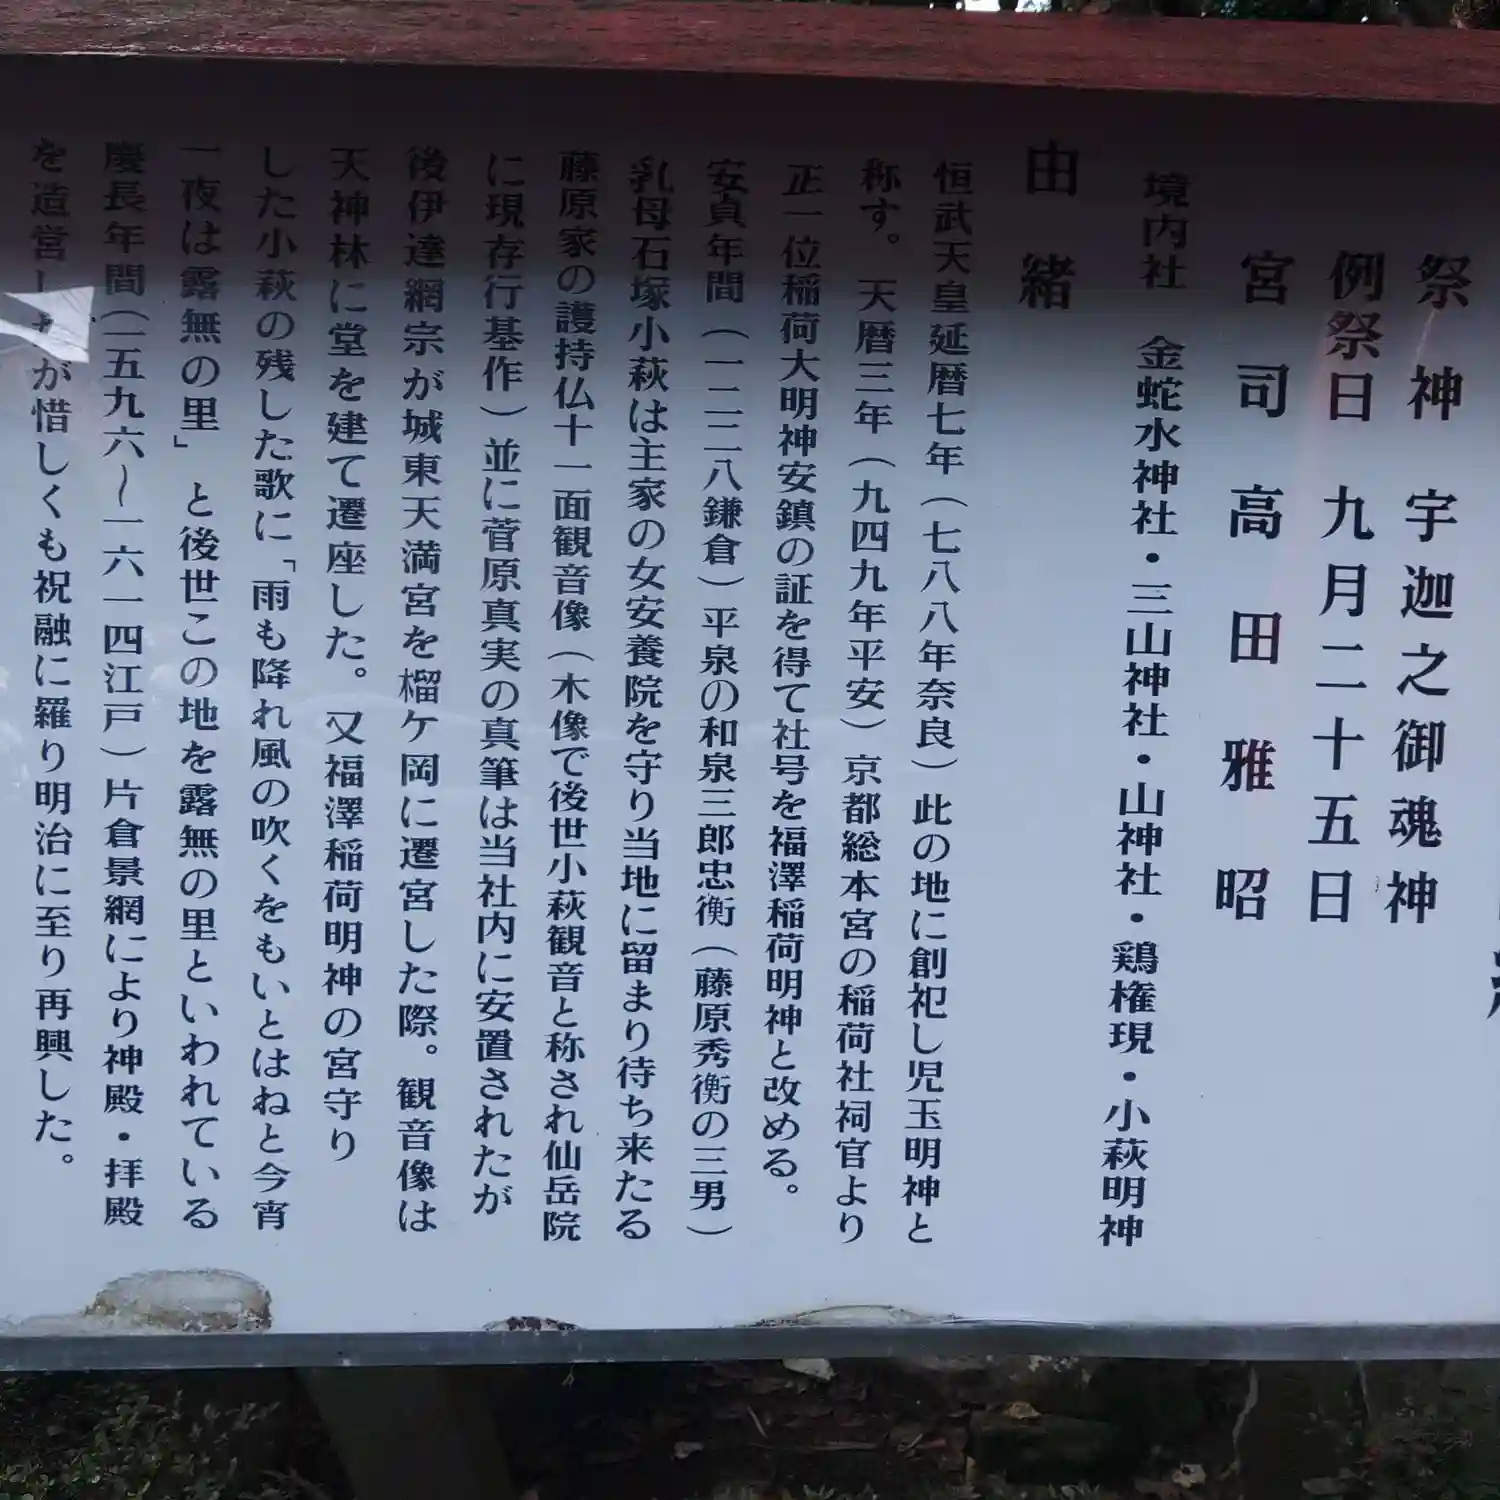 祭神 宇迦之御魂神
例祭日 九月二十五日
宮司 高田雅昭
境内社 金蛇水神社・三山神社・山神社・鶏権現・小萩明神
由緒
恒武天皇延暦七年（七八八年奈良）此の地に創祀し児玉明神と
称す。天暦三年（九四九年平安）京都総本宮の稲荷社祠官より
正一位稲荷大明神安鎮の証を得て社号を福澤稲荷明神と改める。
安貞年間（一二二八鎌倉）平泉の和泉三郎忠衡（藤原秀衡の三男）
乳母石塚小萩は主家の女安養院を守り当地に留まり待ち来たる
藤原家の護持仏十一面観音像（木像で後世小萩観音と称され仙岳院
に現存行基作）並に菅原真実の真筆は当社内に安置されたが
後伊達綱宗が城東天満宮を榴ケ岡に遷宮した際。観音像は
天神林に堂を建て遷座した。又福澤稲荷明神の宮守り
した小萩の残した歌に「雨も降れ風の吹くをもいとはねと今宵
一夜は露無の里」と後世この地を露無の里といわれている
慶長年間（一五九六～一六一四江戸）片倉景綱により神殿・拝殿
を造営し が惜しくも祝融に羅り明治に至り再興した。